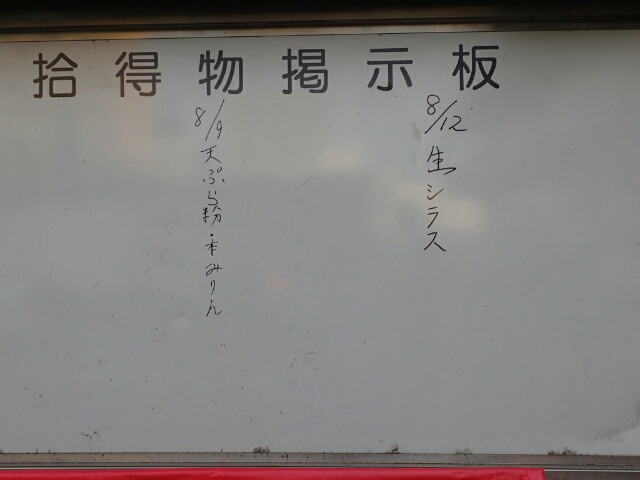 拾得物掲示板
8/12 生シラス
8/9 天ぷら粉・本みりん